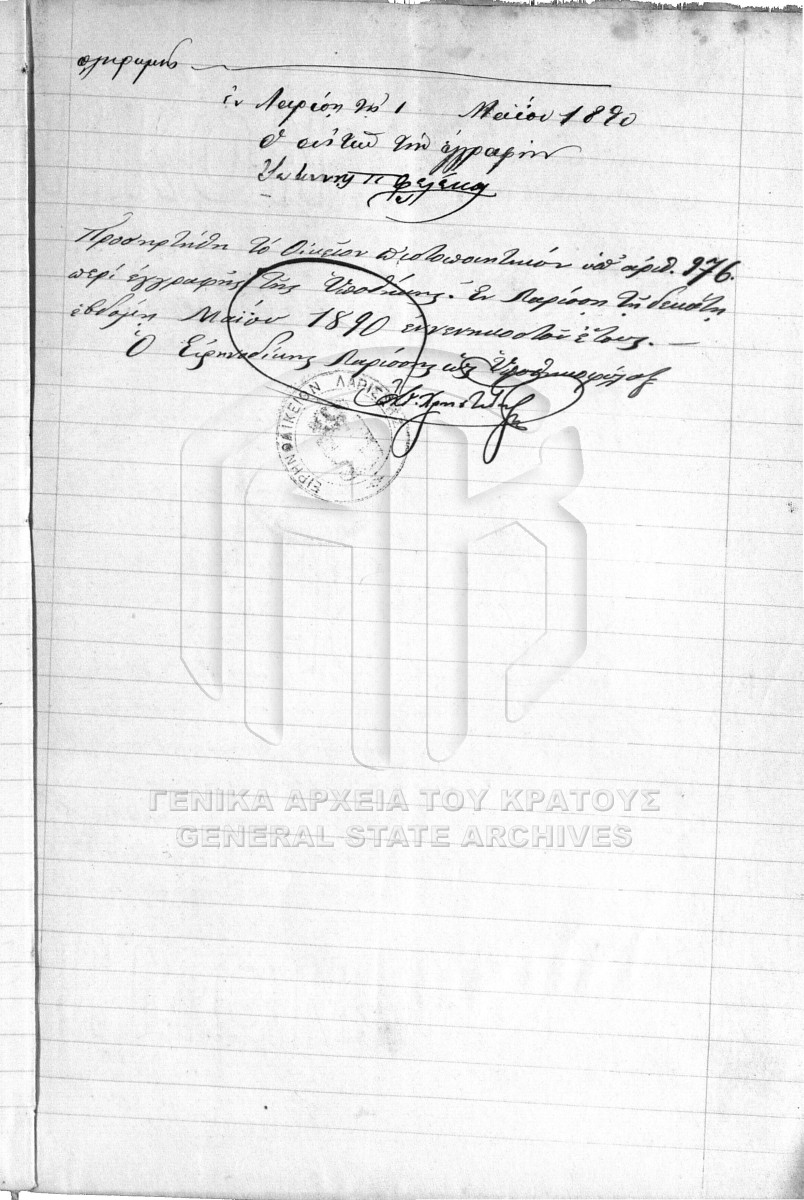 ἐν Λαρίσῃ τῇ 1 Μαΐου 1890
Ὁ αἰτῶν τὴν ἐγγραφὴν
Προσηρτήθη τὸ Οἰκεῖον πιστοποιητικὸν ὑπ' ἀριθ. 976.
περὶ ἐγγραφῆς τῆς Ὑποθήκης. Ἐν Λαρίσσῃ τῇ δεκάτῃ
ἑβδόμῃ Μαΐου 1890 ἐννενηκοστοῦ ἔτους. —
Ὁ Εἰρηνοδίκης Λαρίσσης ὡς Ὑποθηκοφύλαξ
ΕΙΡΗΝΟΔΙΚΕΙΟΝ ΛΑΡΙΣΣΗΣ
ΓΕΝΙΚΑ ΑΡΧΕΙΑ ΤΟΥ ΚΡΑΤΟΥΣ
GENERAL STATE ARCHIVES